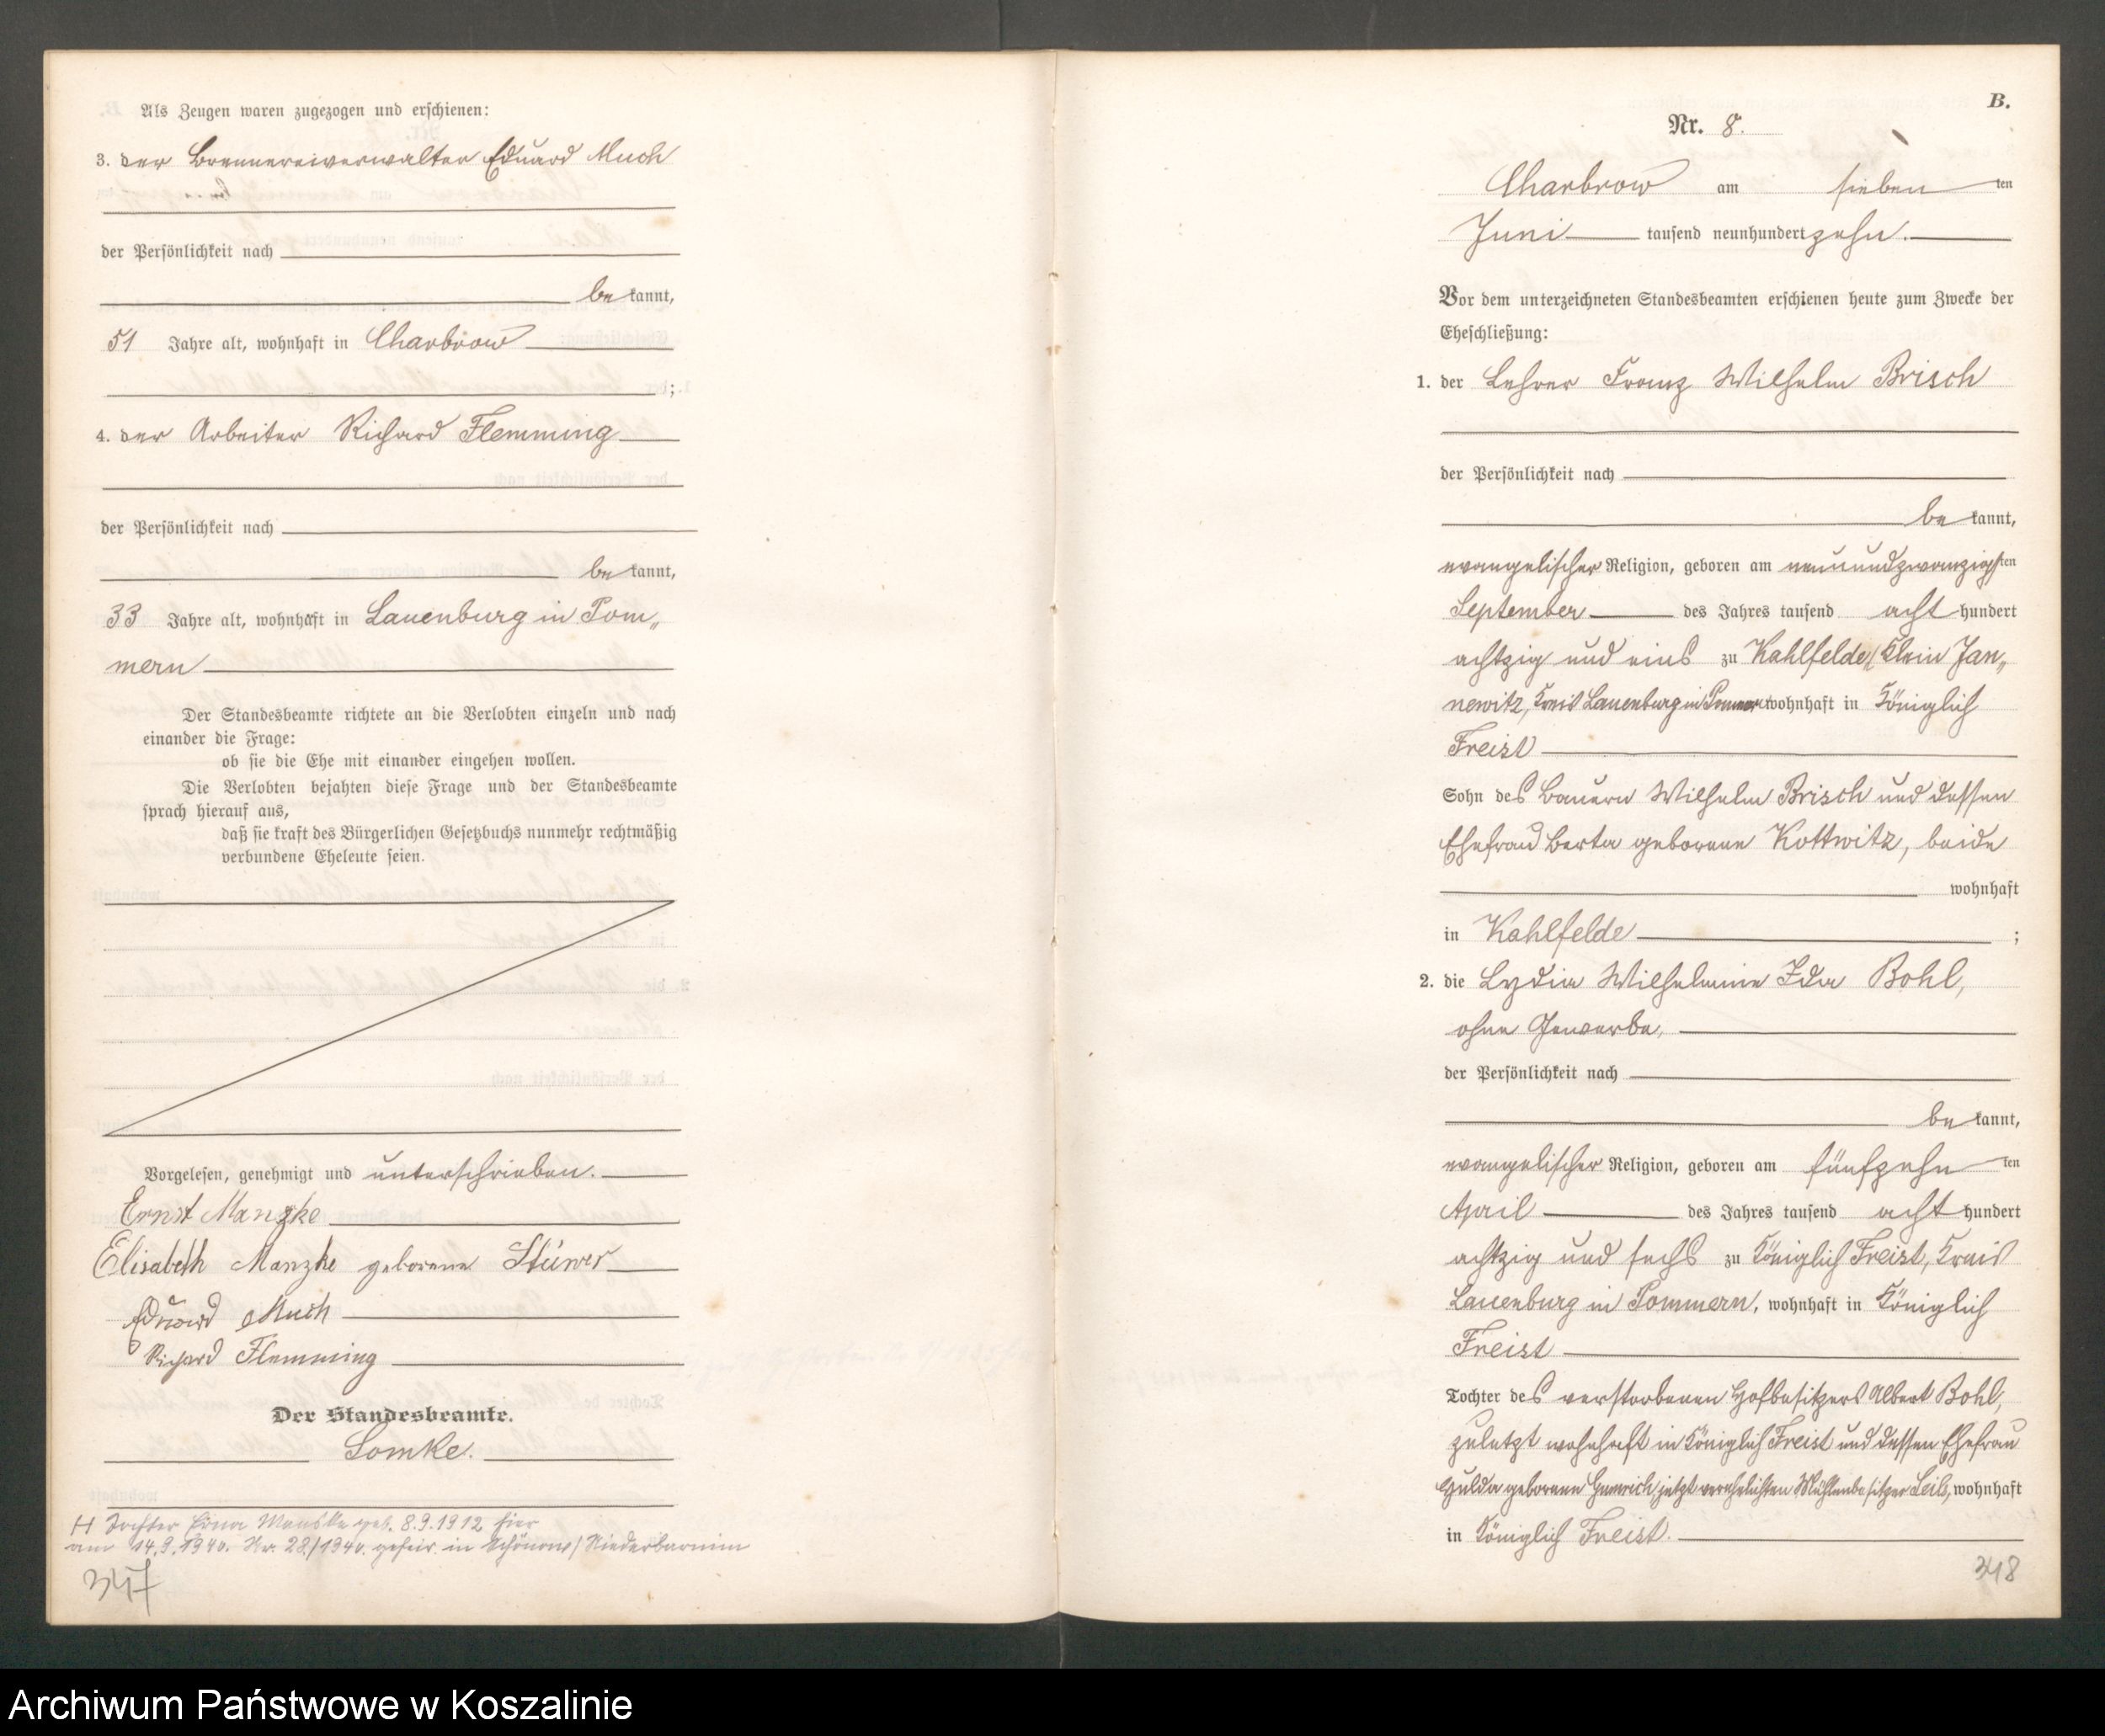 Als Zeugen waren zugezogen und erschienen:
3. der Brennereiverwalter Eduard Much
der Persönlichkeit nach
be kannt,
51 Jahre alt, wohnhaft in Charbrow
;
4. der Arbeiter Richard Flemming
der Persönlichkeit nach
be kannt,
33 Jahre alt, wohnhaft in Lauenburg in Pom„
mern
Der Standesbeamte richtete an die Verlobten einzeln und nach
einander die Frage:
ob sie die Ehe mit einander eingehen wollen.
Die Verlobten bejahten diese Frage und der Standesbeamte
sprach hierauf aus,
daß sie kraft des Bürgerlichen Gesetzbuchs nunmehr rechtmäßig
verbundene Eheleute seien.
Vorgelesen, genehmigt und unterschrieben.
Ernst Manzke
Elisabeth Manzke geborene Stüwer
Eduard Much
Richard Flemming
Der Standesbeamte.
Lomke.
H Tochter geb. 8.9.1912 hier
am 14.9.1940. Nr. 28/1940. geheir. in Schönow/Niederbarnim
347
B.
Nr. 8.
Charbrow am sieben ten
Juni tausend neunhundert zehn.
Vor dem unterzeichneten Standesbeamten erschienen heute zum Zwecke der
Eheschließung:
1. der Lehrer Franz Wilhelm Brisch
der Persönlichkeit nach
be kannt,
evangelischer Religion, geboren am neunundzwanzigsten
September des Jahres tausend acht hundert
achtzig und eins zu Kahlfelde, Klein Jan„
newitz, Kreis Lauenburg in Pommern wohnhaft in Königlich
Freist
Sohn des Bauern Wilhelm Brisch und dessen
Ehefrau Berta geborene Kottwitz, beide
wohnhaft
in Kahlfelde ;
2. die Lydia Wilhelmine Ida Bohl,
ohne Gewerbe,
der Persönlichkeit nach
be kannt,
evangelischer Religion, geboren am fünfzehn ten
April des Jahres tausend acht hundert
achtzig und sechs zu Königlich Freist, Kreis
Lauenburg in Pommern, wohnhaft in Königlich
Freist
Tochter des verstorbenen Hofbesitzers Albert Bohl,
zuletzt wohnhaft in Königlich Freist und dessen Ehefrau
Hulda geborene jetzt verehelichten Mühlenbesitzer Leib, wohnhaft
in Königlich Freist.
348
Archiwum Państwowe w Koszalinie